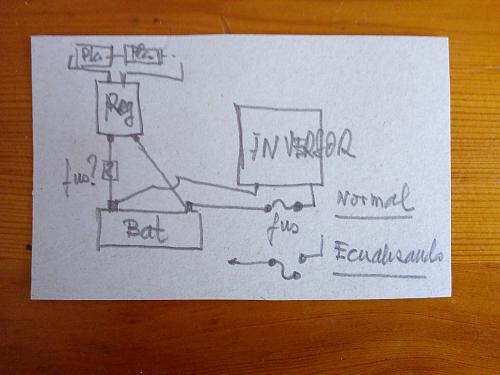 Pla Pla
Reg
INVERSOR
fus?
Normal
fus
Bat
Ecualisando